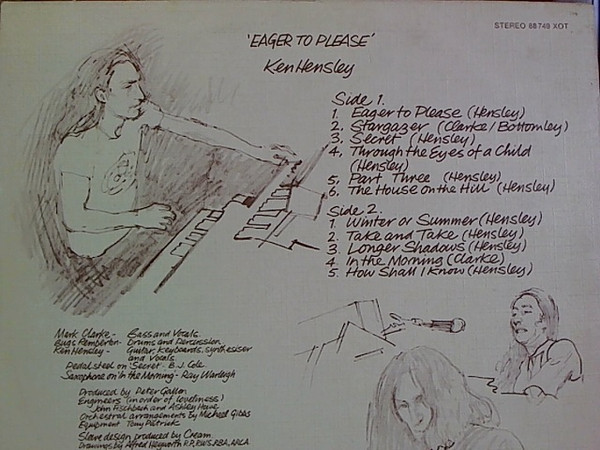 STEREO 88 740 XOT
'EAGER TO PLEASE'
Ken Hensley
Side 1.
1. Eager to Please (Hensley)
2. Stargazer (Clarke/Bottomley)
3. Secret (Hensley)
4. Through the Eyes of a Child
(Hensley)
5. Part Three (Hensley)
6. The House on the Hill (Hensley)
Side 2.
1. Winter or Summer (Hensley)
2. Take and Take (Hensley)
3. Longer Shadows (Hensley)
4. In the Morning (Clarke)
5. How Shall I Know (Hensley)
Mark Clarke - Bass and Vocals.
Bugs Pemberton - Drums and Percussion.
Ken Hensley - Guitar, Keyboards, synthesiser
and Vocals
Pedal steel on 'Secret' - B.J. Cole
Saxophone on 'In the Morning' - Ray Warleigh
Produced by Peter Gallen
Engineers (in order of loveliness!)
John Fischbach and Ashley Howe
Orchestral arrangements by Michael Gibbs
Equipment Tony Patrick
Sleeve design produced by Cream
Drawings by Alfred Heyworth